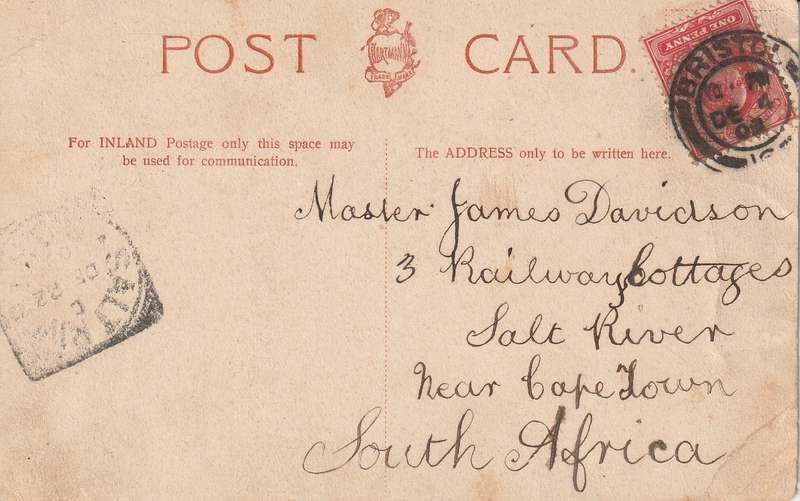 POST CARD.
HARTMANN
TRADE MARK
ONE PENNY
BRISTOL
DE 4
For INLAND Postage only this space may
be used for communication.
The ADDRESS only to be written here.
Master James Davidson
3 Railway Cottages
Salt River
Near Cape Town
South Africa
SALT RIV
DE 22